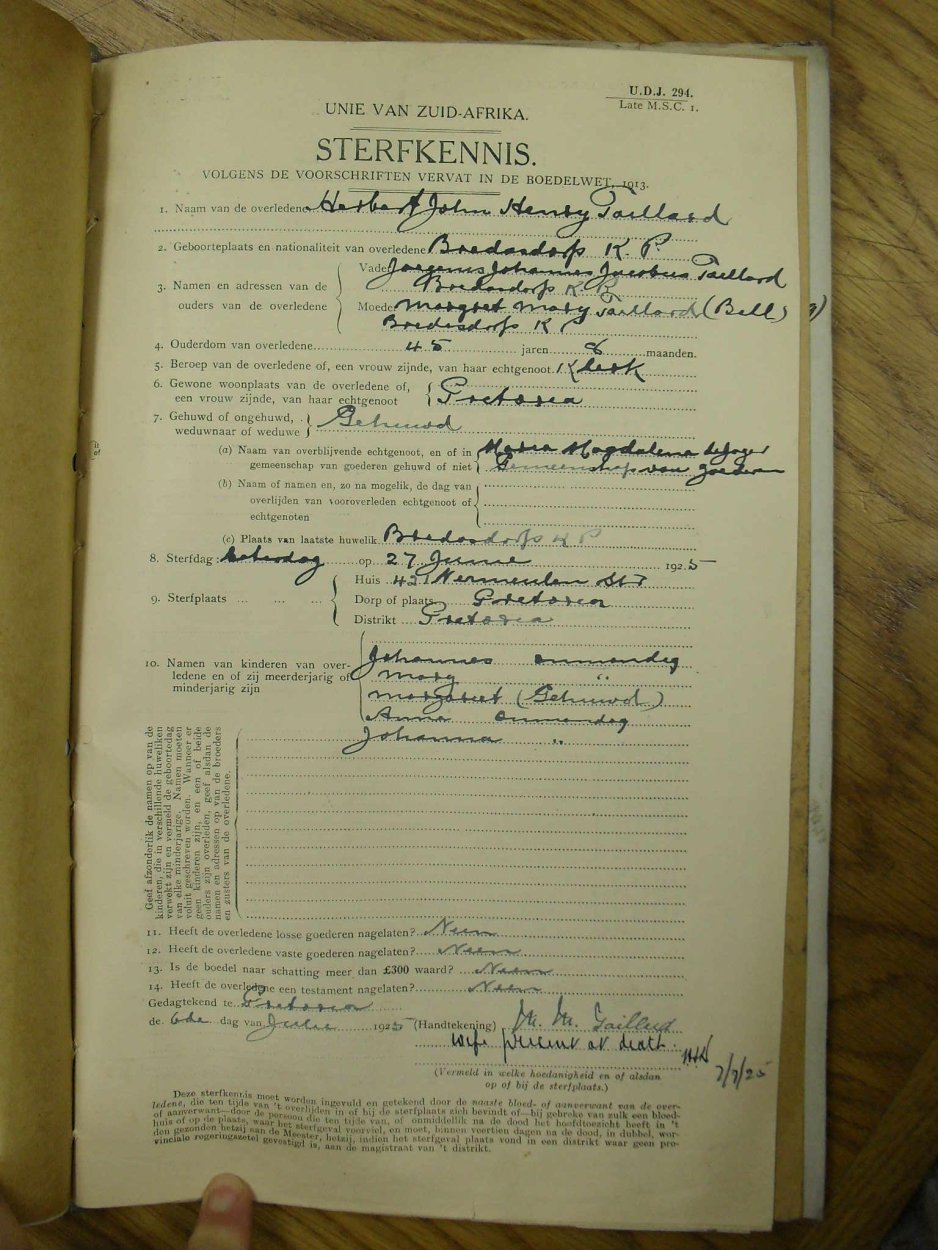 U.D.J. 294.
Late M.S.C. 1.
UNIE VAN ZUID-AFRIKA.
STERFKENNIS.
VOLGENS DE VOORSCHRIFTEN VERVAT IN DE BOEDELWET, 1913.
1. Naam van de overledene Herbert John Henry Taillard
2. Geboorteplaats en nationaliteit van overledene Bredasdorp K. P.
3. Namen en adressen van de ouders van de overledene
Vader Johannes Jacobus Taillard
Bredasdorp K P
Moeder Margret Mary Taillard (Bell)
Bredesdorp K P
4. Ouderdom van overledene 45 jaren 8 maanden.
5. Beroep van de overledene of, een vrouw zijnde, van haar echtgenoot. Klerk
6. Gewone woonplaats van de overledene of,
een vrouw zijnde, van haar echtgenoot Pretoria
7. Gehuwd of ongehuwd,
weduwnaar of weduwe Gehuwd
(a) Naam van overblijvende echtgenoot, en of in Maria Magdalena de Jager
gemeenschap van goederen gehuwd of niet Gemeenschap van goederen
(b) Naam of namen en, zo na mogelik, de dag van
overlijden van vooroverleden echtgenoot of
echtgenoten
(c) Plaats van laatste huwelik Bredasdorp K P
8. Sterfdag: Saterdag op 27 Junie 1925
9. Sterfplaats
Huis 421 Vermeulen Str
Dorp of plaats Pretoria
Distrikt Pretoria
10. Namen van kinderen van over-
ledene en of zij meerderjarig of
minderjarig zijn
Johannes onmondig
Mary "
Margariet (Gehuwd)
Anna onmondig
Johanna "
Geef afzonderlik de namen op van de
kinderen, die in verschillende huweliken
verwekt zijn en vermeld de geboortedag
van elke minderjarige. Namen moeten
voluit geschreven worden. Wanneer er
geen kinderen zijn, en een of beide
ouders zijn overleden, geef alsdan de
namen en adressen op van de broeders
en zusters van de overledene.
11. Heeft de overledene losse goederen nagelaten? Neen
12. Heeft de overledene vaste goederen nagelaten? Neen
13. Is de boedel naar schatting meer dan £300 waard? Neen
14. Heeft de overledene een testament nagelaten? Neen
Gedagtekend te Pretoria
de 6de dag van Julie 1925 (Handtekening) M. M. Taillard
wife present at death.
7/7/25
(Vermeld in welke hoedanigheid en of alsdan
op of bij de sterfplaats.)
Deze sterfkennis moet worden ingevuld en getekend door de naaste bloed- of aanverwant van de over-
ledene, die ten tijde van 't overlijden in of bij de sterfplaats zich bevindt of—bij gebreke van zulk een bloed-
of aanverwant—door de persoon die ten tijde van, of onmiddellik na de dood het hoofdtoezicht heeft in 't
huis of op de plaats, waar het sterfgeval voorviel, en moet, binnen veertien dagen na de dood, in dubbel, wor-
den gezonden hetzij aan de Meester, hetzij, indien het sterfgeval plaats vond in een distrikt waar geen pro-
vinciale regeringszetel gevestigd is, aan de magistraat van 't distrikt.